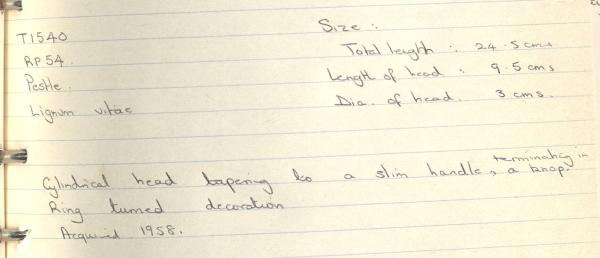 T1540
RP54.
Pestle.
Lignum vitae
Size :
Total length : 24.5 cms
Length of head : 9.5 cms
Dia. of head. 3 cms.
Cylindrical head tapering to a slim handle, terminating in a knop.
Ring turned decoration
Acquired 1958.